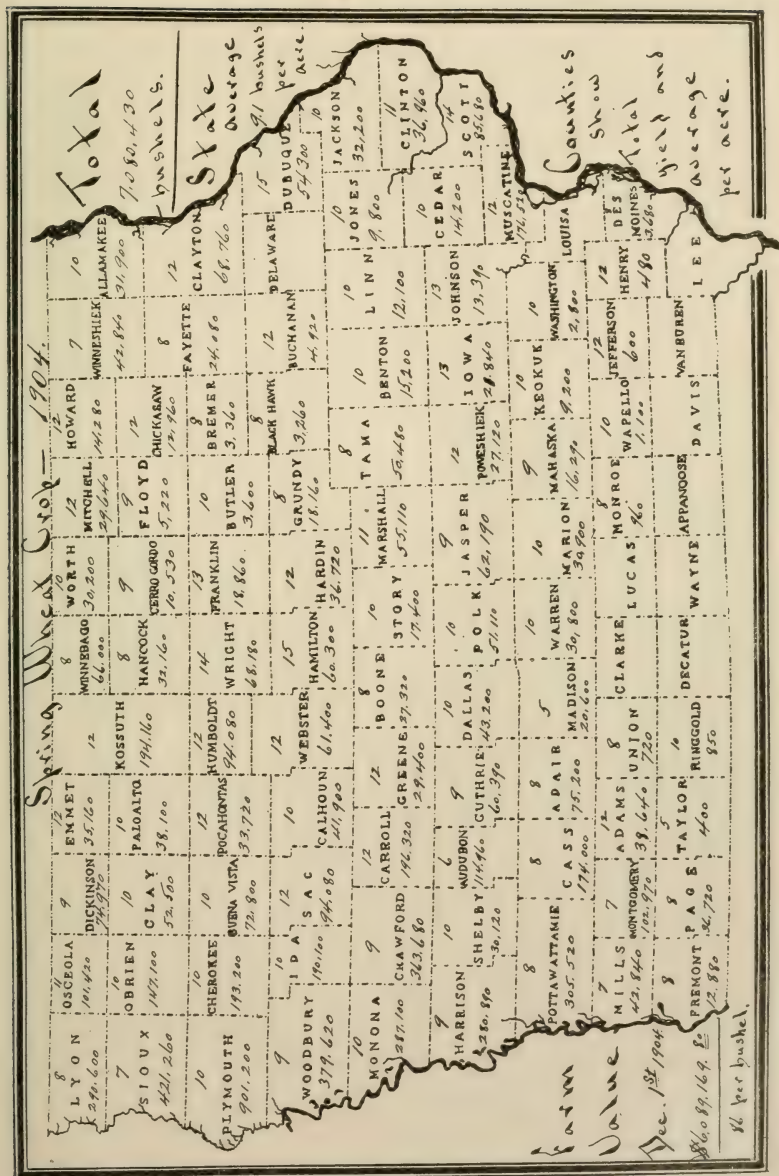 Spring Wheat Crop — 1904.
Total
7.080.430
bushels.
State
average
9.1 bushels
per
acre.
8
LYON
290.600
11
OSCEOLA
101.420
9
DICKINSON
12
EMMET
35.160
12
KOSSUTH
194.160
8
WINNEBAGO
66.000
10
WORTH
30,200
12
MITCHELL
29.640
12
HOWARD
14.280
7
WINNESHIEK
42.840
10
ALLAMAKEE
31.900
7
SIOUX
421,260
10
OBRIEN
147.100
10
CLAY
52.500
10
PALOALTO
38,100
8
HANCOCK
32.160
9
CERRO GORDO
10.530
9
FLOYD
5,220
12
CHICKASAW
12,960
8
FAYETTE
24.080
12
CLAYTON
68.760
10
PLYMOUTH
901.200
10
CHEROKEE
193.200
10
BUENA VISTA
72.800
12
POCAHONTAS
33,720
12
HUMBOLDT
94.080
14
WRIGHT
68.180
13
FRANKLIN
18,860
10
BUTLER
3,600
8
BREMER
3,360
9
WOODBURY
379.620
10
IDA
190.100
12
SAC
94.080
10
CALHOUN
141,900
12
WEBSTER
61.400
15
HAMILTON
60.300
12
HARDIN
36.720
8
GRUNDY
18.160
8
BLACK HAWK
3,260
12
BUCHANAN
4.920
15
DELAWARE
10
DUBUQUE
54300
10
MONONA
287.100
9
CRAWFORD
363.680
12
CARROLL
146.320
12
GREENE
29.400
8
BOONE
27.320
10
STORY
17.400
11
MARSHALL
55,110
8
TAMA
50.480
10
BENTON
15,200
10
LINN
12,100
10
JONES
9.800
10
JACKSON
32,200
9
HARRISON
280.890
10
SHELBY
30,120
6
AUDUBON
114.960
9
GUTHRIE
60.390
10
DALLAS
43,200
10
POLK
51.110
9
JASPER
62,190
12
POWESHIEK
27.120
13
IOWA
13
JOHNSON
13,390
10
CEDAR
14.200
11
CLINTON
36,960
14
SCOTT
85.680
12
MUSCATINE
8
POTTAWATTAMIE
305.520
8
CASS
174.000
8
ADAIR
75.200
5
MADISON
20,600
10
WARREN
30,800
10
MARION
30,900
9
MAHASKA
16,290
10
KEOKUK
9.200
10
WASHINGTON
2,800
LOUISA
7
MILLS
42.840
7
MONTGOMERY
102.970
12
ADAMS
38.640
8
UNION
720
CLARKE
LUCAS
8
MONROE
960
10
WAPELLO
1,100
12
JEFFERSON
600
12
HENRY
480
8
DES
MOINES
3,680
8
FREMONT
12.880
8
PAGE
36,720
5
TAYLOR
400
10
RINGGOLD
850
DECATUR
WAYNE
APPANOOSE
DAVIS
VAN BUREN
LEE
Farm
Value
Dec. 1st 1904.
$6.089.169.80
86 per bushel.
Counties
Show
Total
yield and
average
per acre.